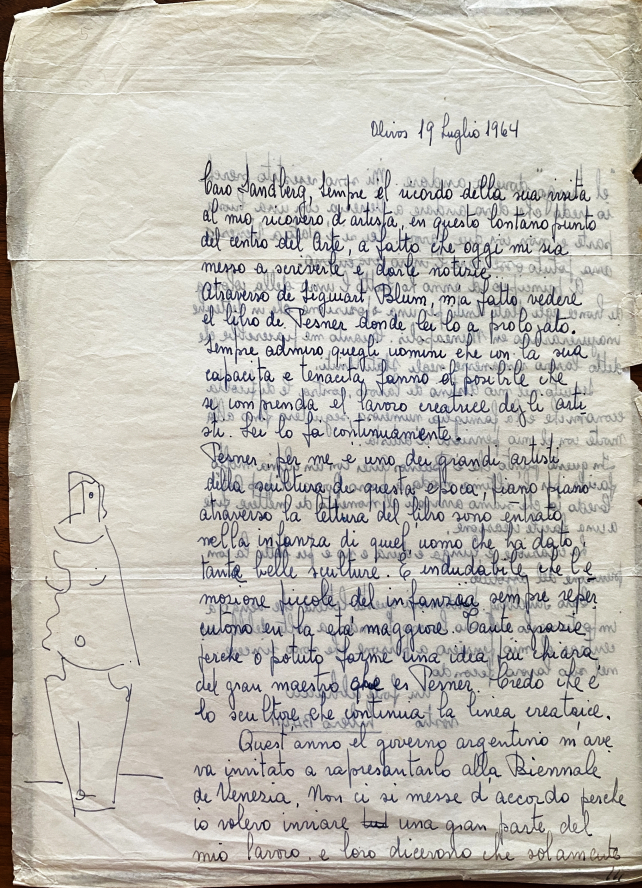 Olivos 19 Luglio 1964
Caro Sandberg, sempre el ricordo della sua visita
al mio ricovero d'artista, en questo lontano punto
del centro del Arte, a fatto che oggi mi sia
messo a scriverle e darle notizie.
Atraverso de Liguart, Blum, m,a fatto, vedere
el libro de Pesner donde lei lo a prologato.
Sempre admiro quegli uomini che con la sua
capacita e tenacita fanno el posibile che
se comprenda el lavoro creatrice degli arti
sti. Lei lo fa continuamente.
Pesner, per me e uno dei grandi artisti
della scultura de questa epoca, piano piano
atraverso la lettura del libro sono entrato
nella infanzia di quel, uomo che ha dato
tante belle sculture. E indudabile che l'e
mozione piccole del infanzia sempre reper
cutono en la etá maggiore. Tante grazie
perche o potuto farme una idea piu chiara
del gran maestro que es Pesner. Credo che é
lo scultore che continua la linea creatrice.
Quest anno el governo argentino m'ave
va invitato a rapresantarlo alla Biennale
de Venezia. Non ci si messe d'accordo perche
io volevo inviare una gran parte del
mio lavoro, e loro dicevono che solamente